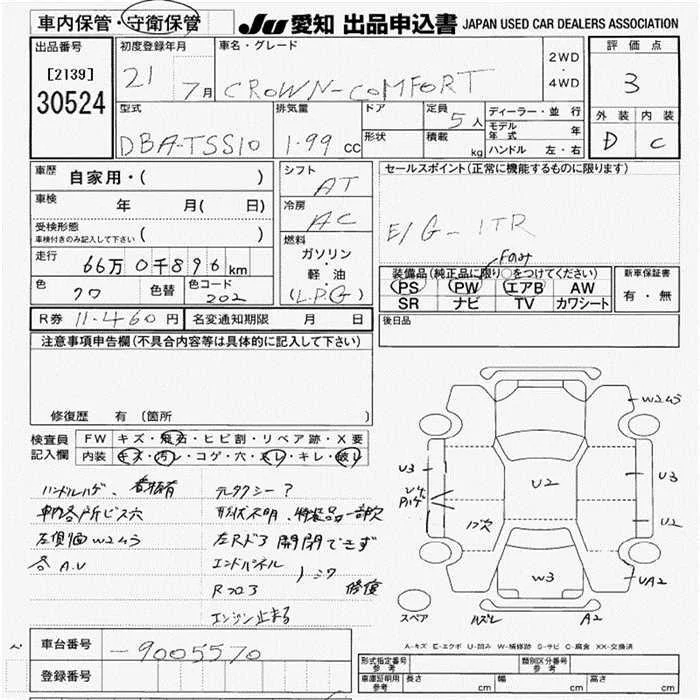 車内保管・守衛保管
JU 愛知 出品申込書 JAPAN USED CAR DEALERS ASSOCIATION
出品番号
[2139]
30524
初度登録年月
21 7月
車名・グレード
CROWN-COMFORT
2WD
・
4WD
評価点
3
外装 内装
D C
型式
DBA-TSS10
排気量
1.99 cc
ドア
形状
定員
5人
積載
kg
ディーラー・並行
モデル年式 年
ハンドル 左・右
車歴
自家用・( )
車検
年 月( 日)
受検形態
車検付きのみ記入して下さい ( )
走行
66万0千896km
色
クロ
色替
色コード
202
シフト
AT
冷房
AC
燃料
ガソリン
・
軽・油
(L.P.G)
セールスポイント(正常に機能するものに限ります)
E/G-1TR
Fのみ
装備品(純正品に限り○をつけてください)
PS PW エアB AW
SR ナビ TV カワシート
新車保証書
有・無
R券 11.460円
名変通知期限 月 日
後日品
注意事項申告欄(不具合内容等は具体的に記入して下さい)
修復歴 有(箇所
検査員
記入欄
FW キズ・飛石・ヒビ割・リペア跡・X要
内装 キズ・汚レ・コゲ・穴・スレ・キレ・破レ
ハンドルハゲ、
車内各所ビス穴
左側面W2 4う
各A.U
元タクシー?
形状不明、特装品一部欠
左Rドア開閉できず
エンドパネル
Rフロア
シワ
修復
エンジン止まる
W2 4う
U3
U2
W3
U3
U2
UA2
A2
ハズレ
スペア
車台番号
-9005570
登録番号
A-キズ E-エクボ U-凹み W-補修跡 S-サビ C-腐食 XX-交換済
形式指定番号
参考
類別区分番号
参考
車庫証明用
参考
長さ cm
幅 cm
高さ cm